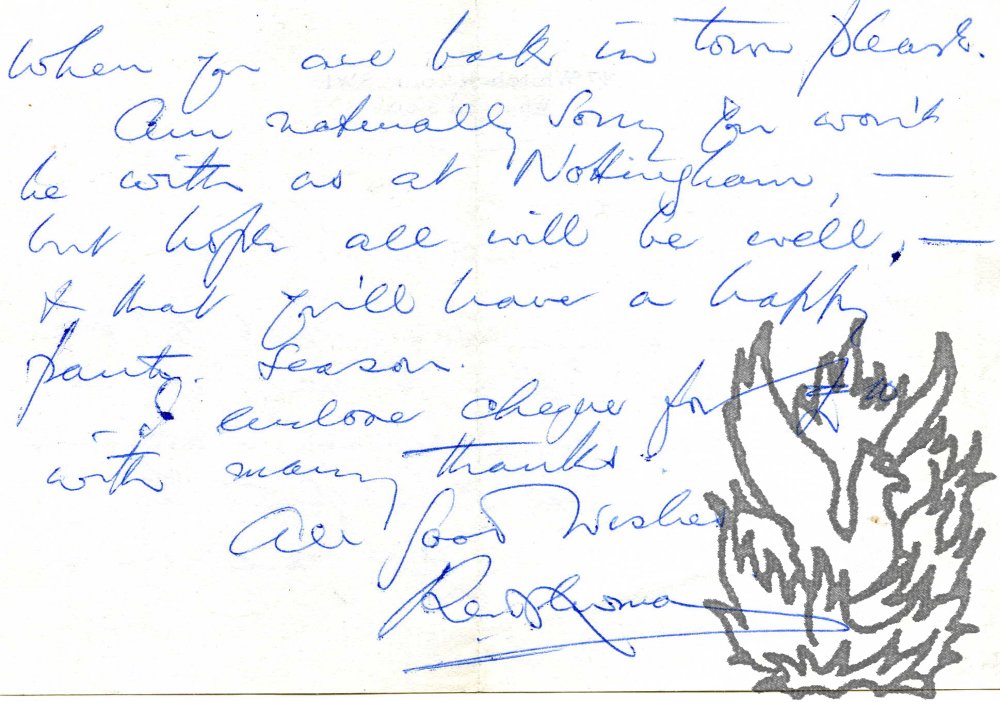 when you are back in town please.
Am naturally sorry you won't
be with us at Nottingham, —
but hope all will be well, —
& that you'll have a happy
panto. season.
I enclose cheque for £
with many thanks.
All Good Wishes